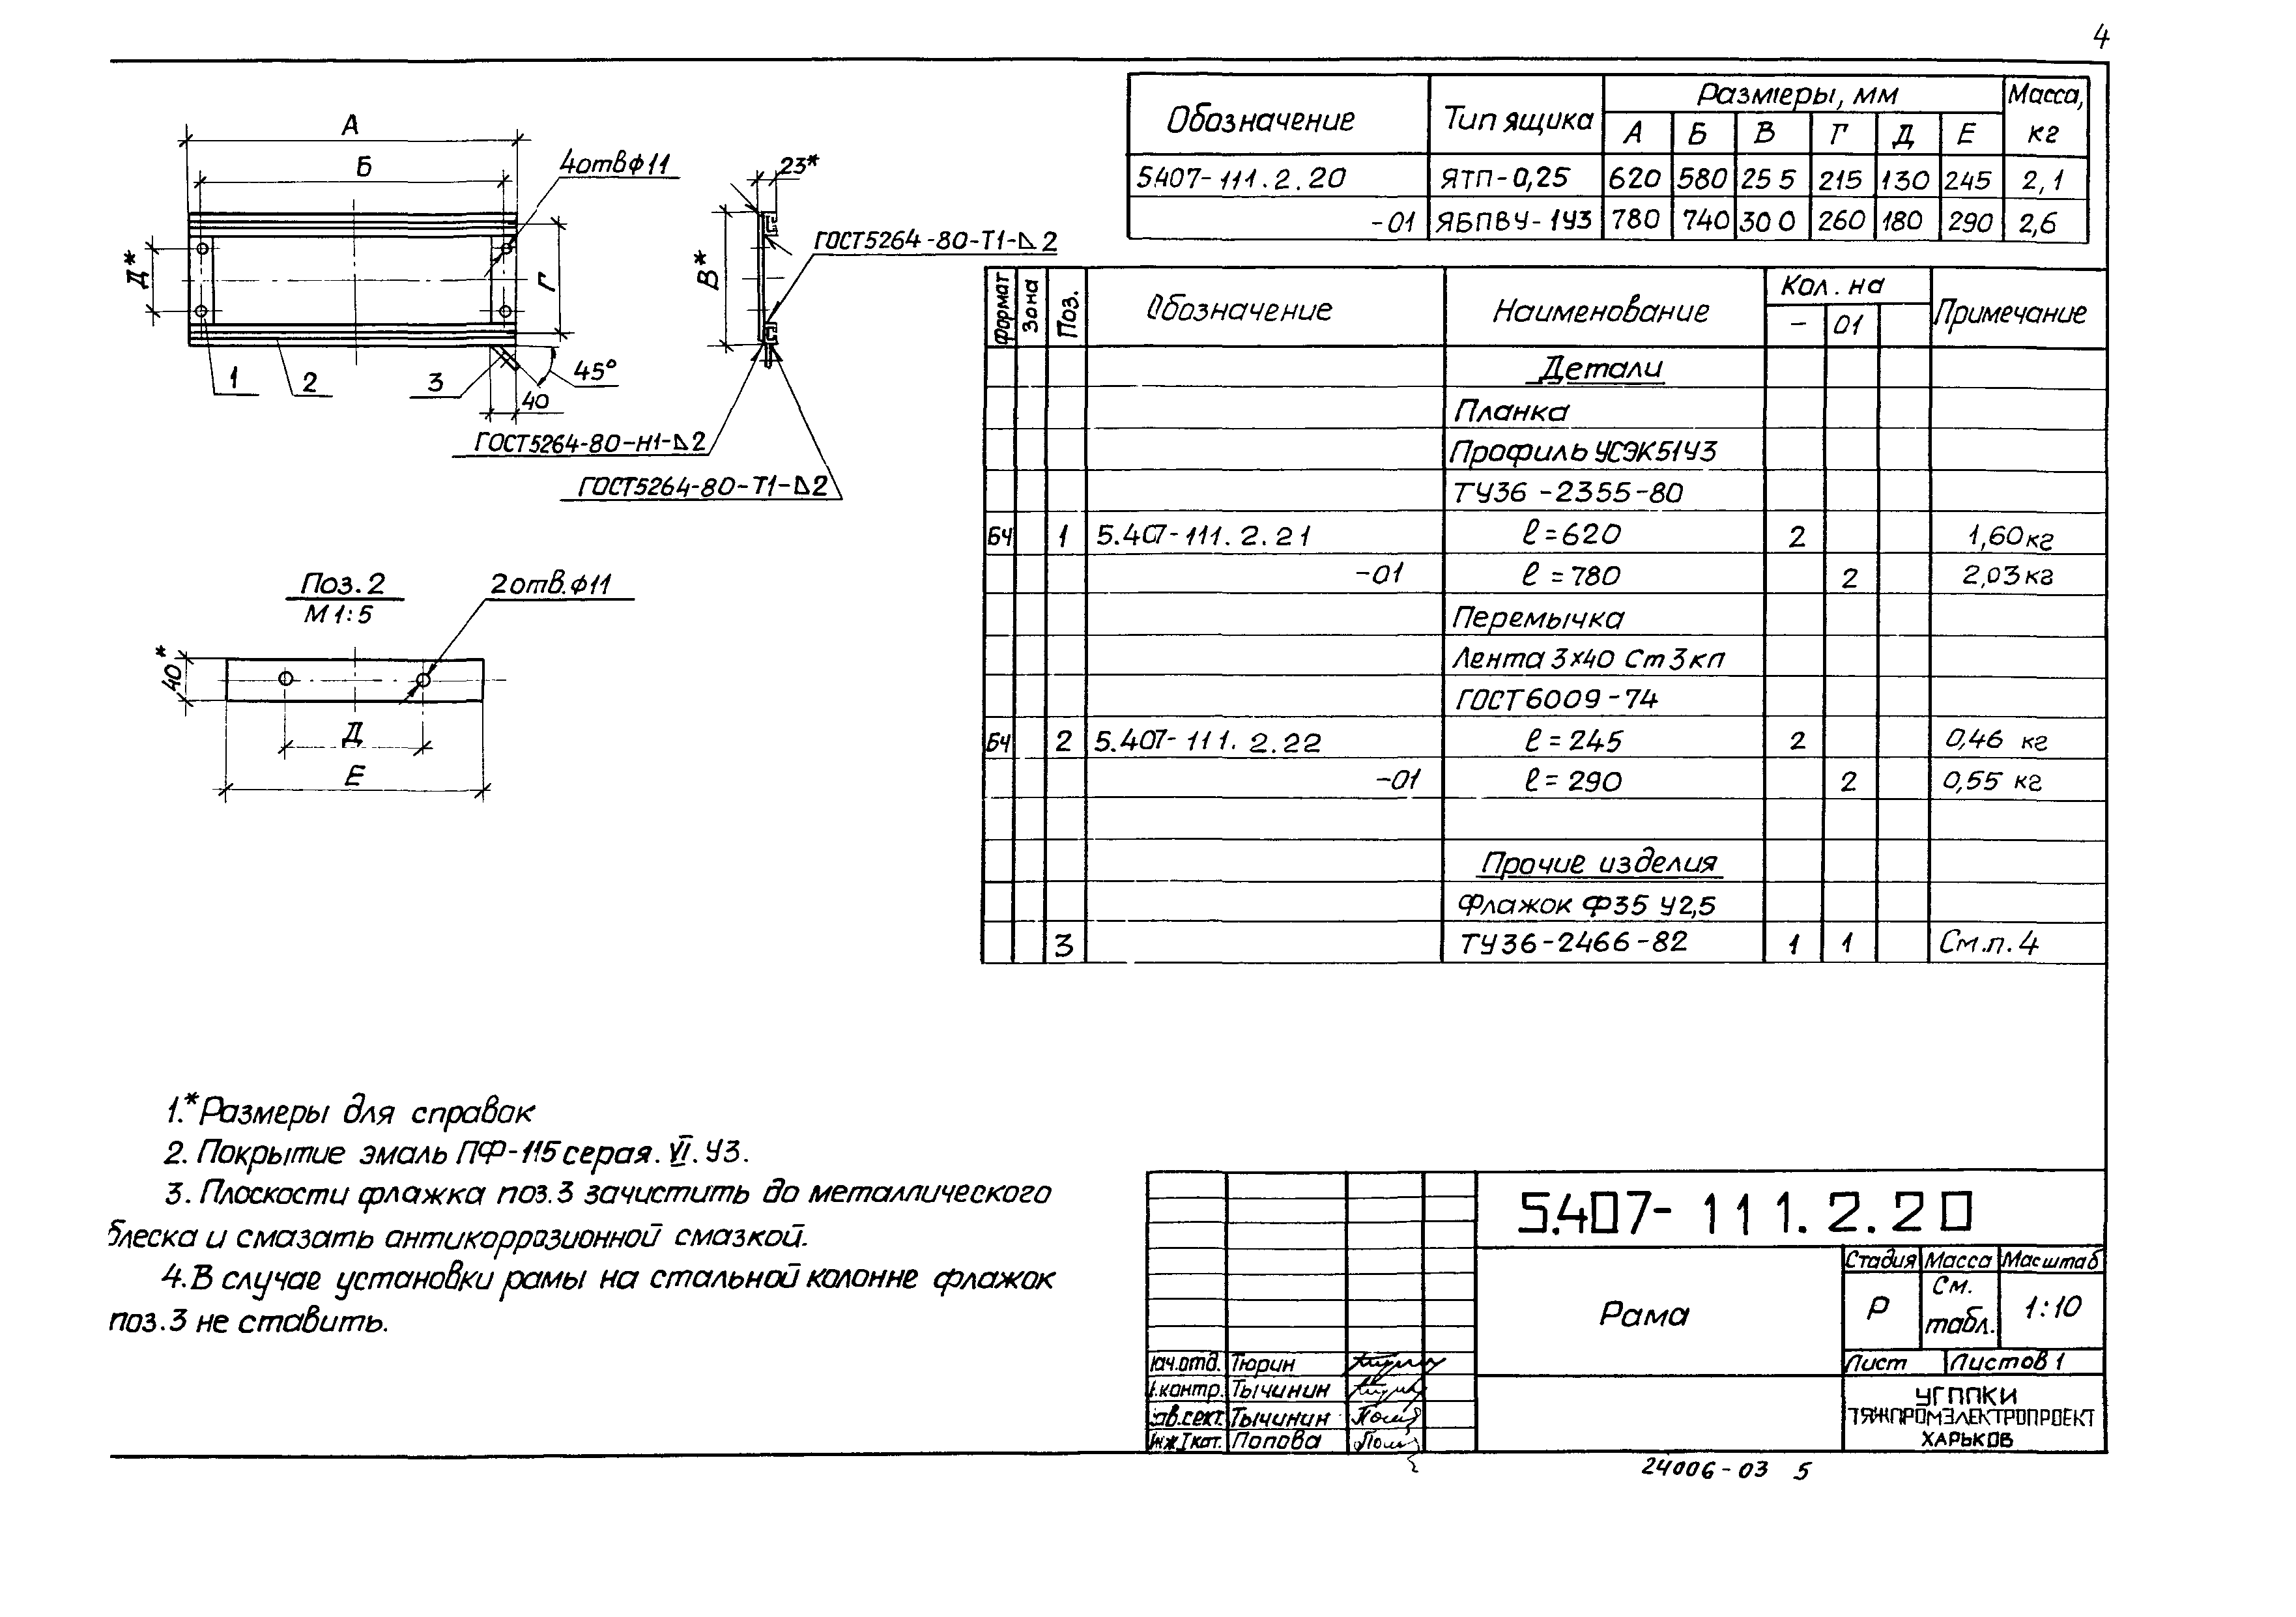 4
А
Б
4отвφ11
23*
ГОСТ5264-80-Т1-⊿2
Д*
Г
В*
1
2
3
45°
40
ГОСТ5264-80-Н1-⊿2
ГОСТ5264-80-Т1-⊿2
Поз.2
М 1:5
2отв.φ11
40*
Д
Е
Обозначение Тип ящика Размеры, мм Масса, кг
А Б В Г Д Е
5.407-111.2.20 ЯТП-0,25 620 580 255 215 130 245 2,1
-01 ЯБПВУ-1У3 780 740 300 260 180 290 2,6
Формат Зона Поз. Обозначение Наименование Кол. на Примечание
- 01
Детали
Планка
Профиль УСЭК51У3
ТУ36-2355-80
БЧ 1 5.407-111.2.21 ℓ=620 2 1,60кг
-01 ℓ=780 2 2,03кг
Перемычка
Лента 3×40 Ст3кп
ГОСТ6009-74
БЧ 2 5.407-111.2.22 ℓ=245 2 0,46 кг
-01 ℓ=290 2 0,55 кг
Прочие изделия
Флажок Ф35 У2,5
3 ТУ36-2466-82 1 1 См.п.4
1.*Размеры для справок
2. Покрытие эмаль ПФ-115 серая. VI. У3.
3. Плоскости флажка поз.3 зачистить до металлического
блеска и смазать антикоррозионной смазкой.
4. В случае установки рамы на стальной колонне флажок
поз.3 не ставить.
5.407-111.2.20
Рама
Стадия Масса Масштаб
Р См. табл. 1:10
Лист Листов 1
УГППКИ
ТЯЖПРОМЭЛЕКТРОПРОЕКТ
ХАРЬКОВ
нач.отд. Тюрин
н.контр. Тычинин
зав.сект. Тычинин
инж.Iкат. Попова
24006-03 5